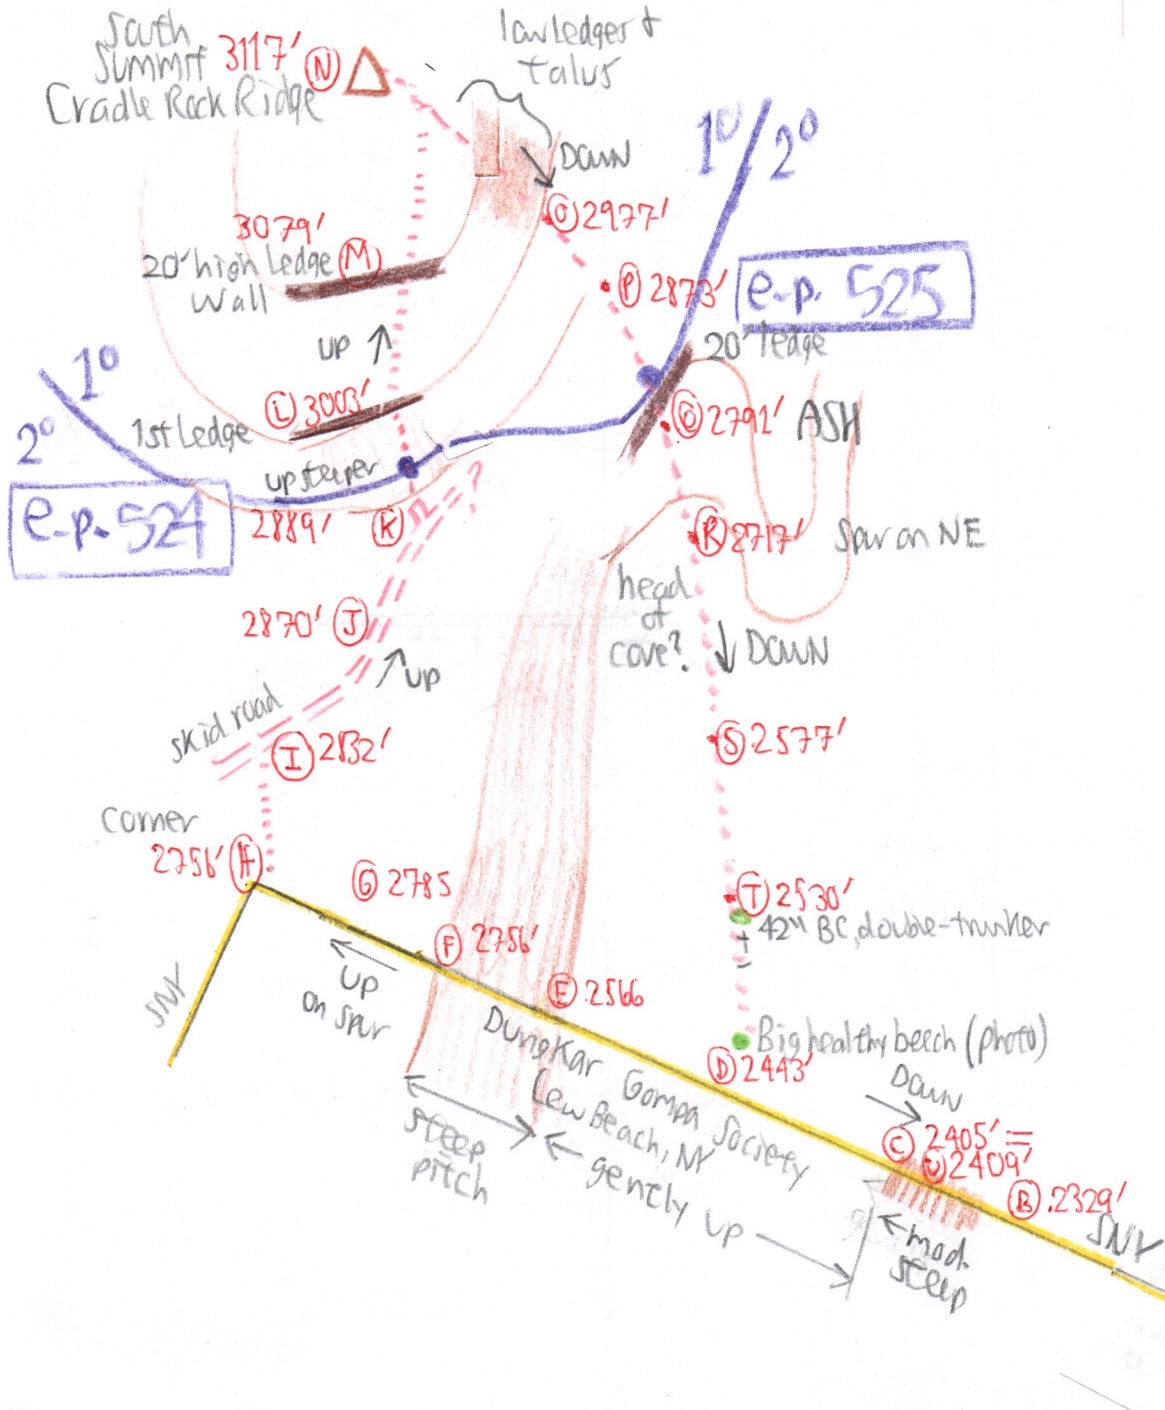 South
Summit 3117' N
Cradle Rock Ridge
low Ledges +
talus
DOWN
1° / 2°
O 2977'
3079'
20' high Ledge M
Wall
P 2873'
e.p. 525
20' ledge
UP
1°
2°
L 3003'
1st Ledge
Q 2791' ASH
up steeper
e.p. 524
2889' K
?
R 2717' Spur on NE
head
of
cove?
DOWN
2870' J
UP
skid road
I 2832'
S 2577'
Corner
2756' H
G 2785
T 2530'
42" BC, double-trunker
F 2756'
UP
on spur
E 2566
SNY
Big healthy beech (photo)
D 2443'
DungKar Gompa Society
Lew Beach, NY
DOWN
C 2405' =
U 2409'
B 2329'
steep
pitch
gently up
mod.
steep
SNY